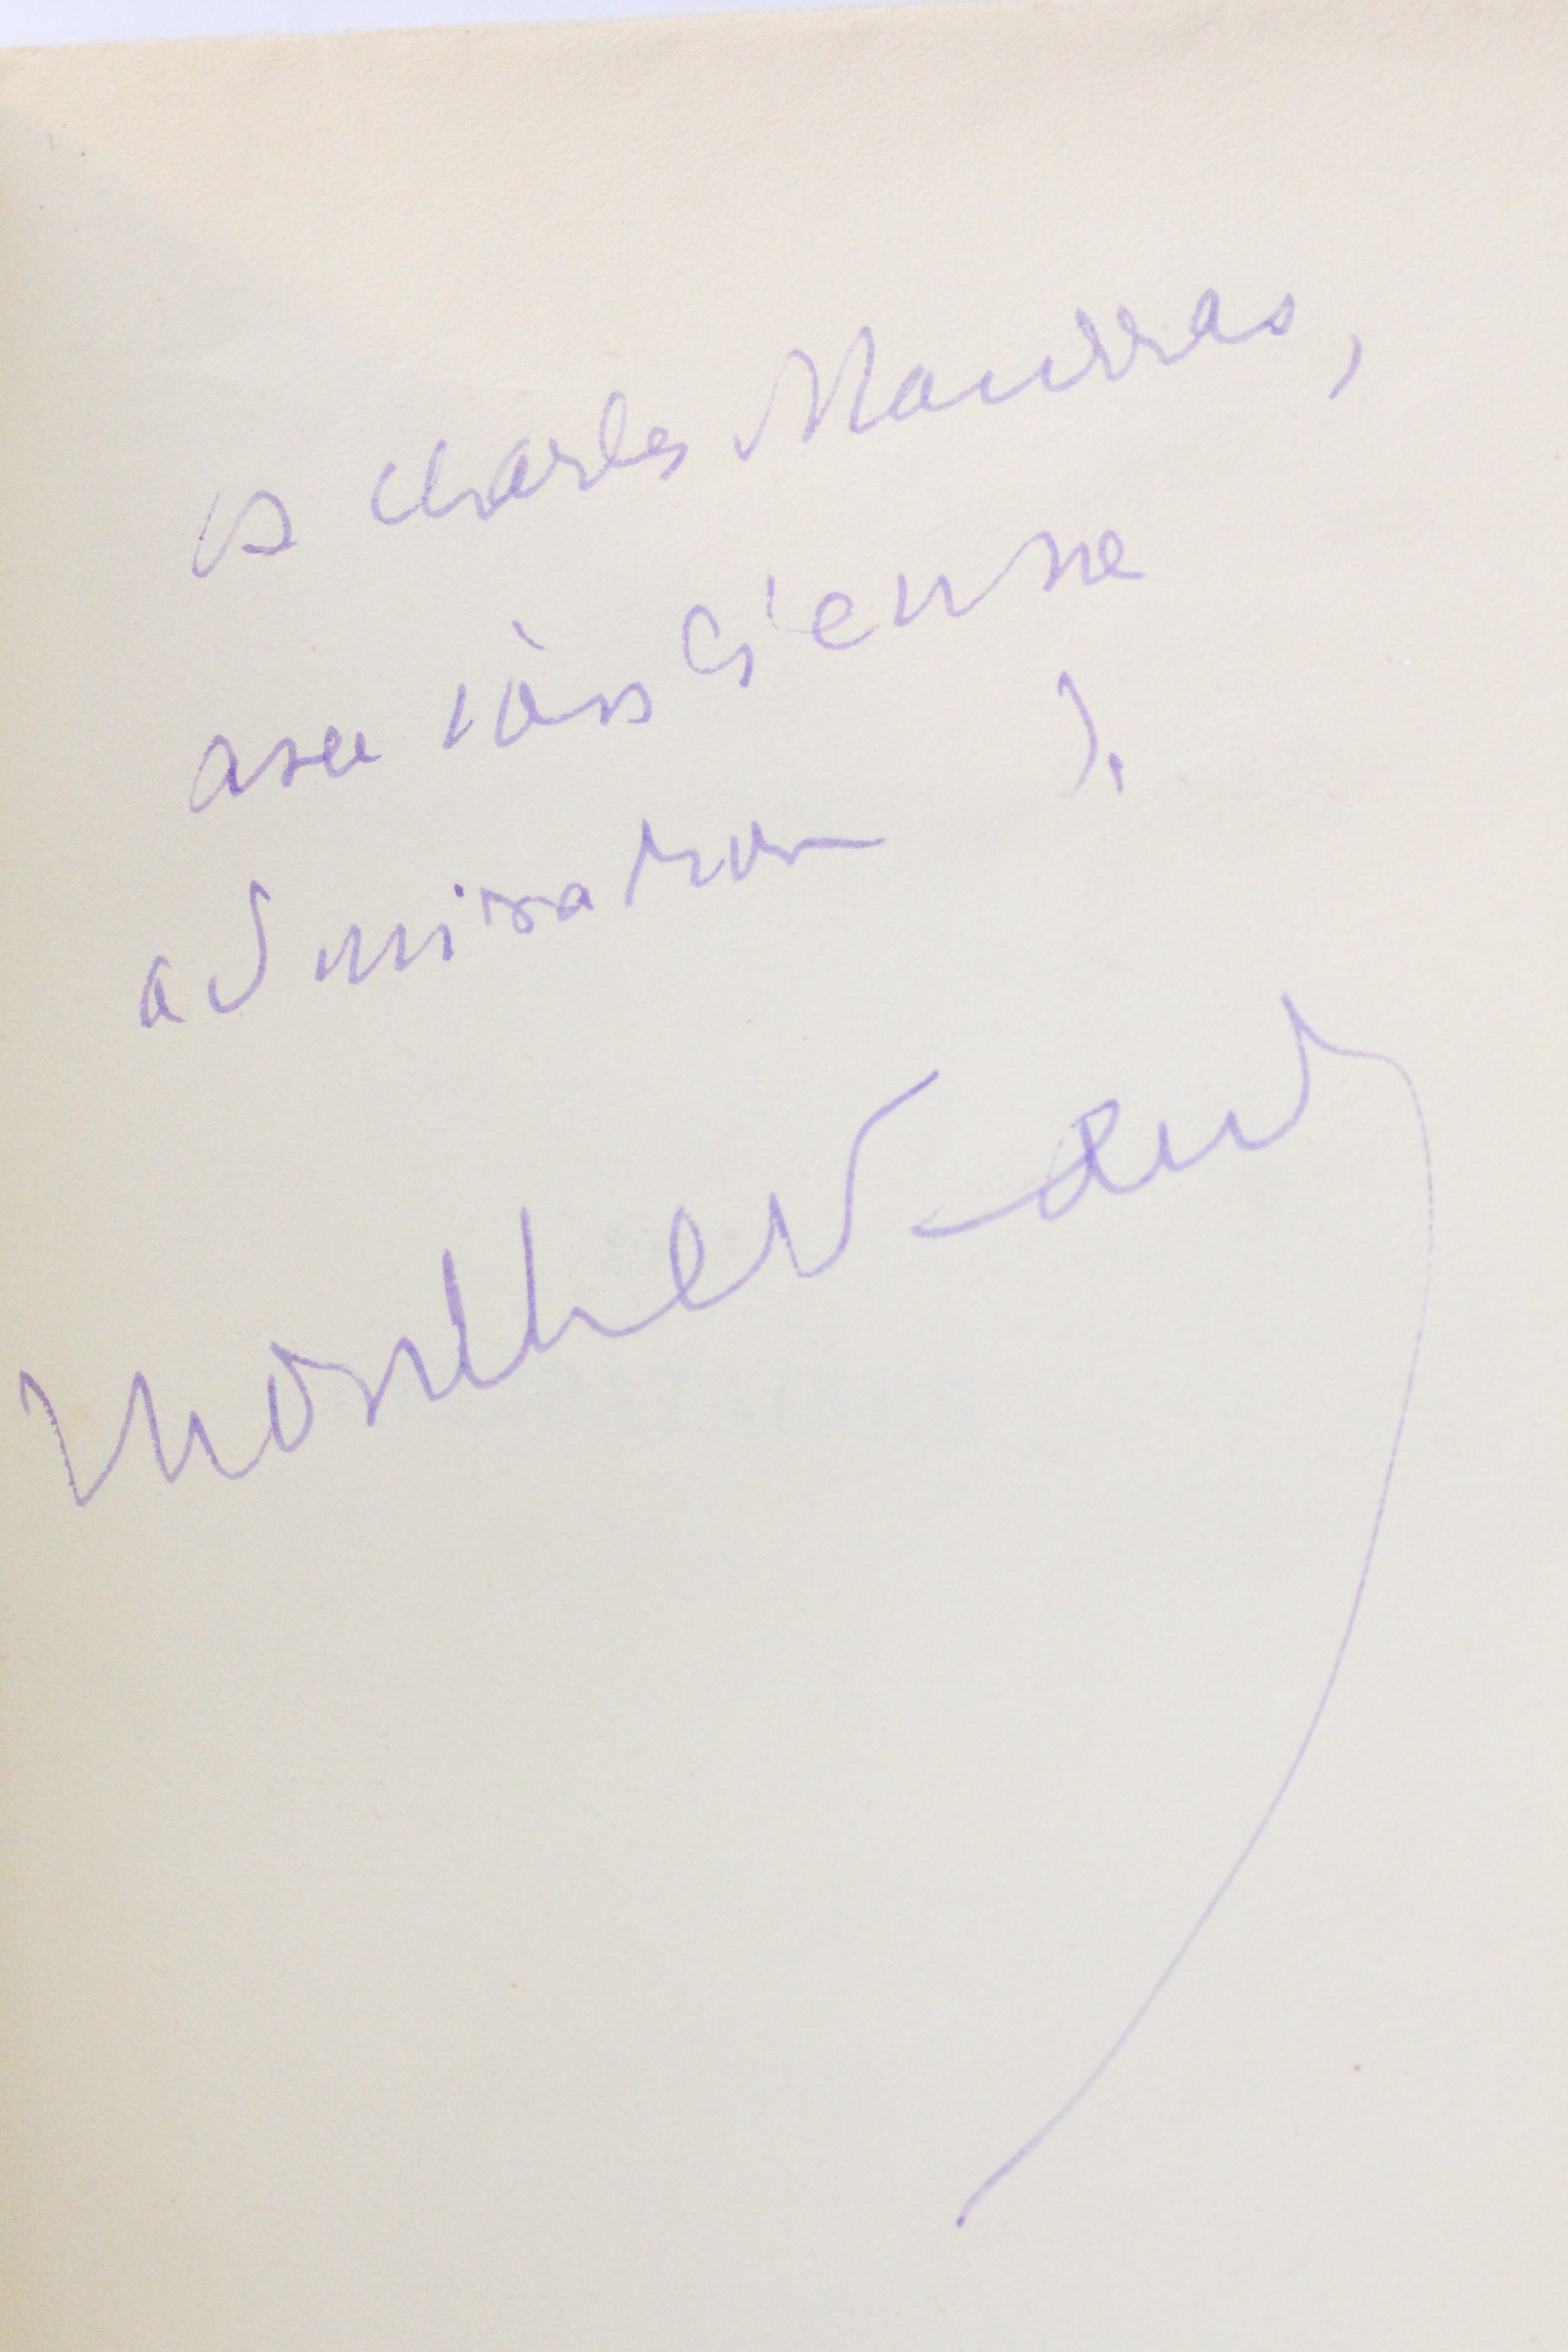 à Charles Maurras,
avec l'ancienne
admiration de
Montherlant